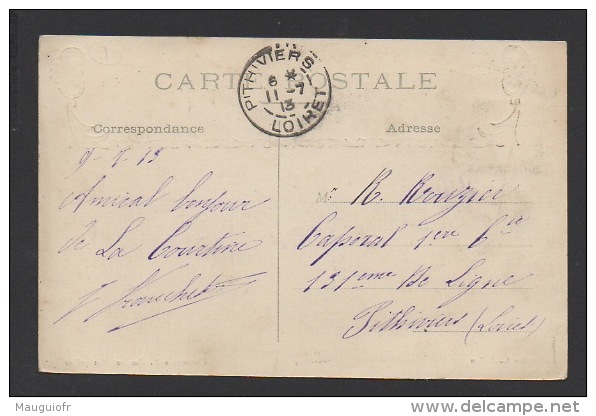 CARTE POSTALE
PITHIVIERS
6 *
11 -7
13
LOIRET
Correspondance
Adresse
9-7-13
Amical bonjour
de La Courtine
M. R. Rougier
Caporal 1ere Cie
131eme De Ligne
Pithiviers (Loiret)
Mauguiofr
Delcampe.net